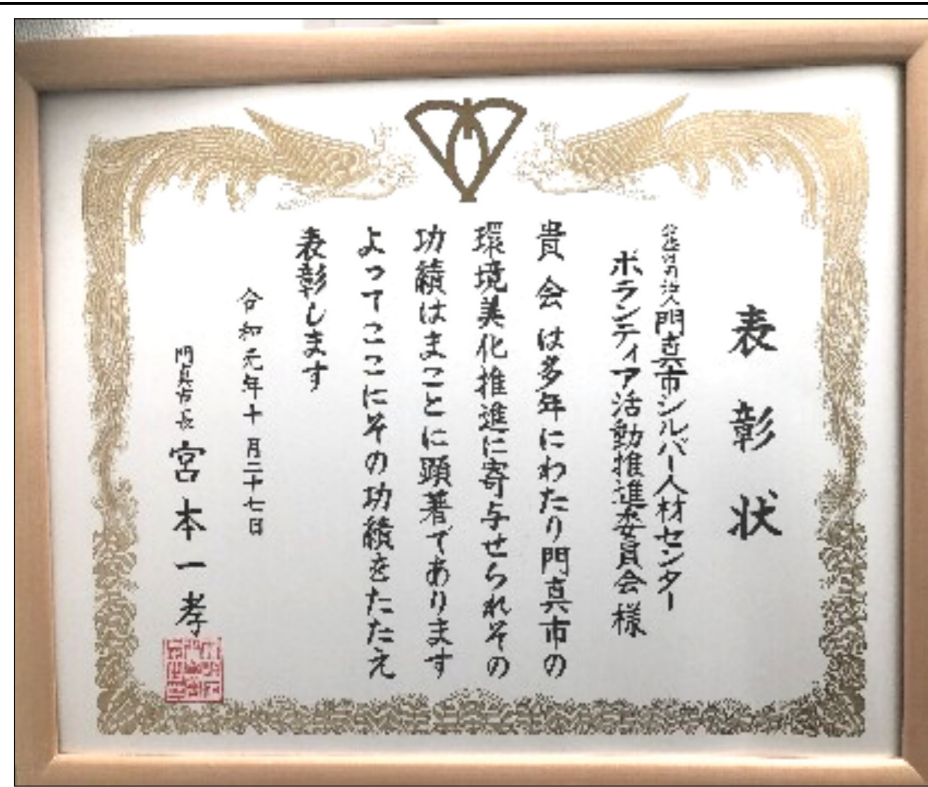 表彰状
公益社団法人門真市シルバー人材センター
ボランティア活動推進委員会様
貴会は多年にわたり門真市の
環境美化推進に寄与せられその
功績はまことに顕著であります
よってここにその功績をたたえ
表彰します
令和元年十月二十七日
門真市長 宮本一孝